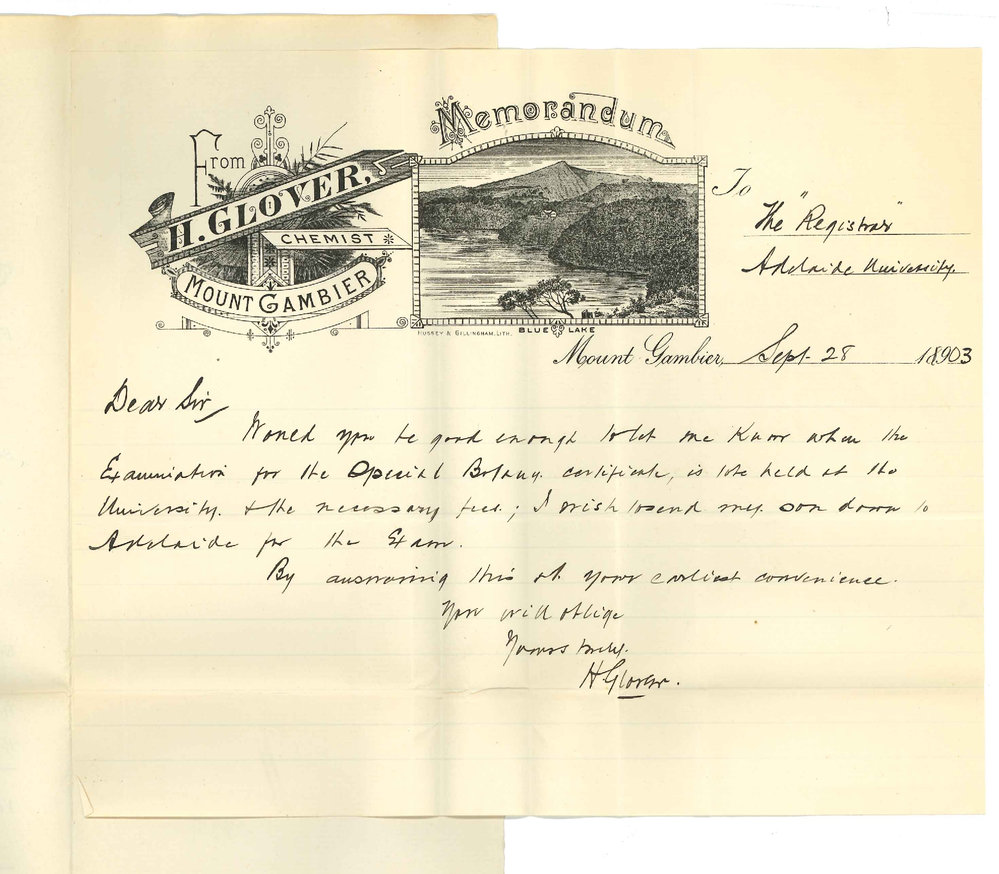 Memorandum
From
H. GLOVER,
CHEMIST
MOUNT GAMBIER
HUSSEY & GILLINGHAM, LITH.
BLUE LAKE
To
The "Registrar"
Adelaide University.
Mount Gambier, Sept 28 18903
Dear Sir
Would you be good enough to let me know when the
Examination for the Special Botany certificate, is to be held at the
University. & the necessary fees; I wish to send my son down to
Adelaide for the Exam.
By answering this at your earliest convenience.
You will oblige
Yours truly.
H Glover.